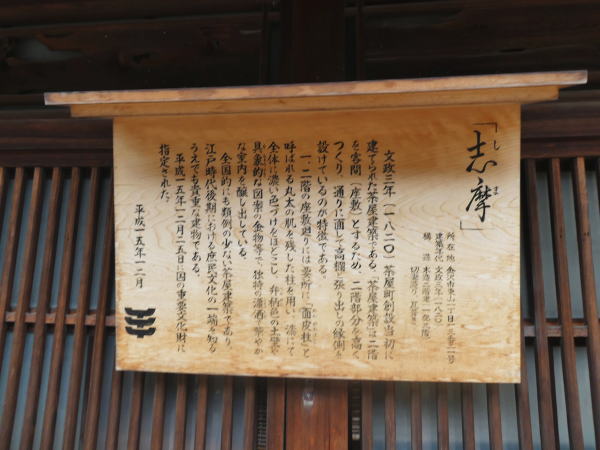 「志摩」
しま
所在地 金沢市東山一丁目一三番二一号
建築年代 文政三年(一八二〇)
構造 木造二階建 一部三階
切妻造り 瓦葺き
文政三年(一八二〇)茶屋町創設当初に
建てられた茶屋建築である。「茶屋建築は二階
を客間(座敷)とするため、二階部分を高く
つくり、通りに面して高欄と張り出しの縁側を
設けているのが特徴である。
一、二階の座敷廻りには要所に「面皮柱」と
呼ばれる丸太の肌を残した柱を用い、漆にて
全体に濃い色づけをほどこし、弁柄色の土壁や
具象的な図案の金物等で、独特の瀟洒で華やか
な室内を醸し出している。
全国的にも類例の少ない茶屋建築であり
江戸時代後期における庶民文化の一端を知る
うえでも貴重な建物である。
平成一五年一二月二五日に国の重要文化財に
指定された。
平成一五年一二月